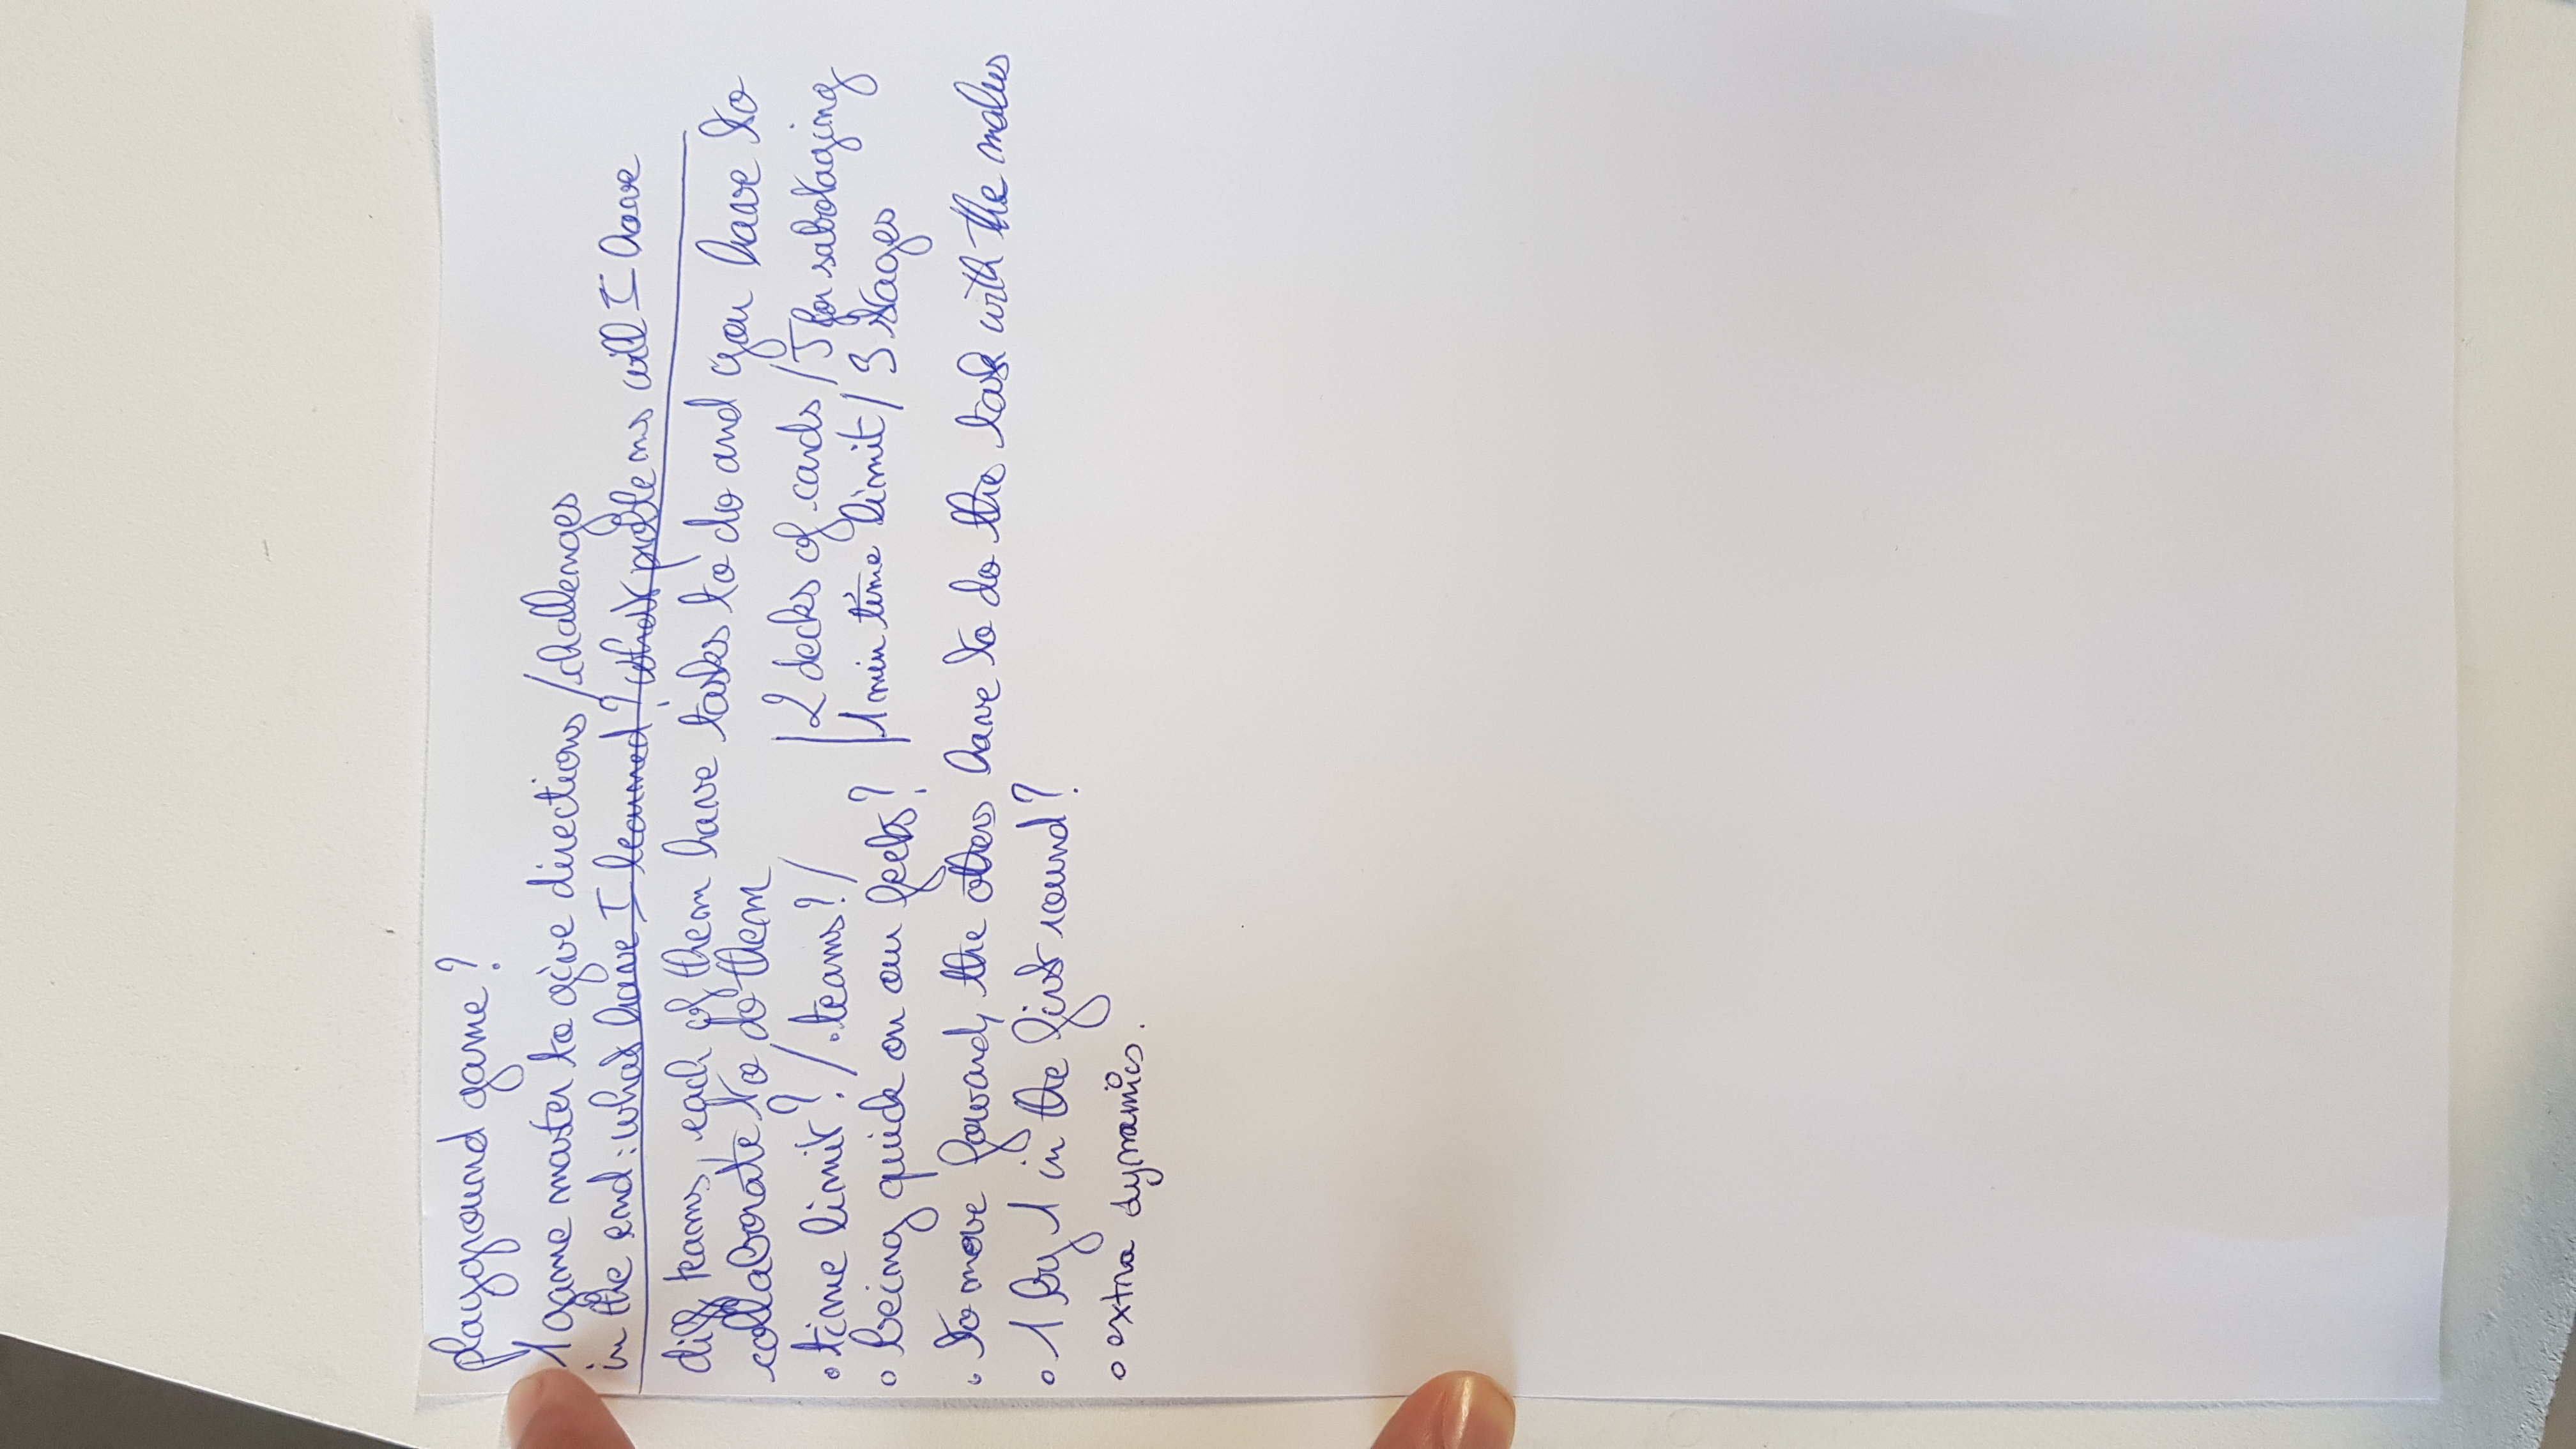 playground game?
1 game master to give directions/challenges
in the end: what have I learned? what problems will I have
diff teams, each of them have tasks to do and you have to
collaborate to do them
• time limit? / • teams? /
• being quick on our feets?
| 2 decks of cards / J for sabotaging
| 1 min time limit / 3 stages
• to move foward, the others have to do the task with the malus
• 1 by 1 in the first round?
• extra dynamics.